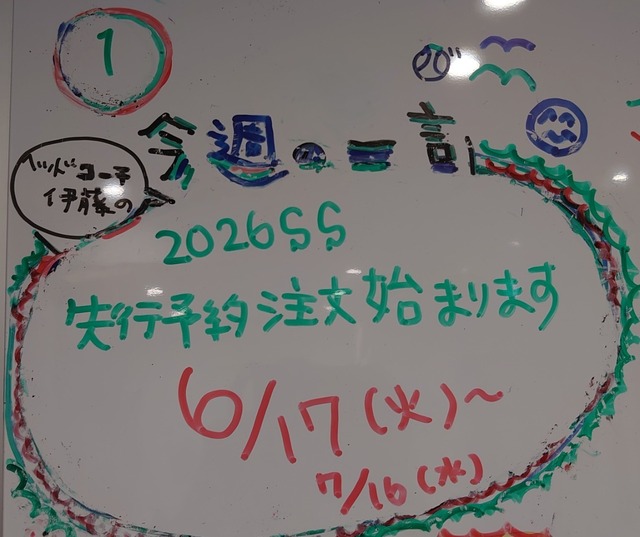 1
今週の一言
ヘッドコーチ
伊藤の
2026SS
先行予約注文始まります
6/17(火)~
7/16(水)